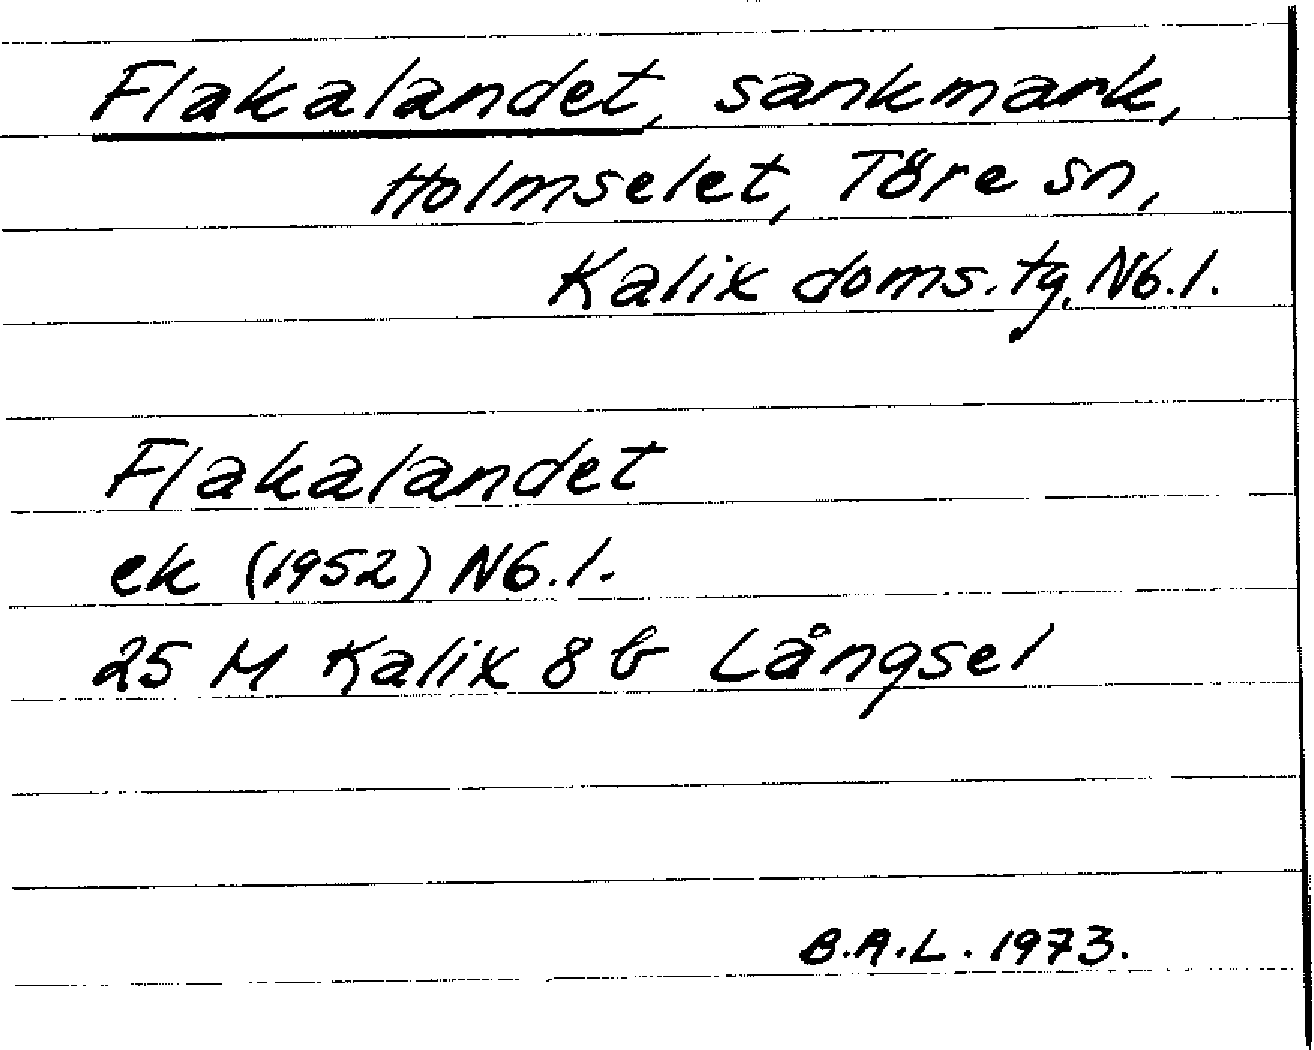 Flakalandet, sankmark,
Holmselet, Töre sn,
Kalix doms.tg. Nb.l.
Flakalandet
ek (1952) Nb.l.
25 M Kalix 8 b Långsel
B.A.L. 1973.